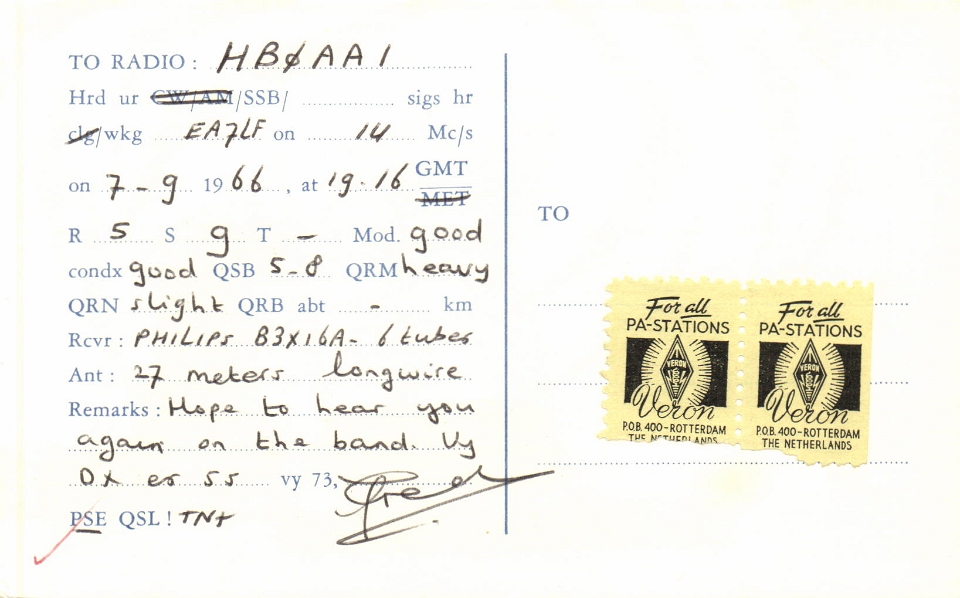 TO RADIO: HBØAAI
Hrd ur CW/AM/SSB/ sigs hr
clg/wkg EA7LF on 14 Mc/s
on 7-9 1966, at 19.16 GMT
MET
R 5 S 9 T - Mod. good
condx good QSB 5-8 QRM heavy
QRN slight QRB abt - km
Rcvr: PHILIPS B3X16A - 6 tubes
Ant: 27 meters longwire
Remarks: Hope to hear you
again on the band. Vy
Dx es 55 vy 73,
PSE QSL! TNX
TO
For all
PA-STATIONS
VERON
Veron
P.O.B. 400-ROTTERDAM
THE NETHERLANDS
For all
PA-STATIONS
VERON
Veron
P.O.B. 400-ROTTERDAM
THE NETHERLANDS